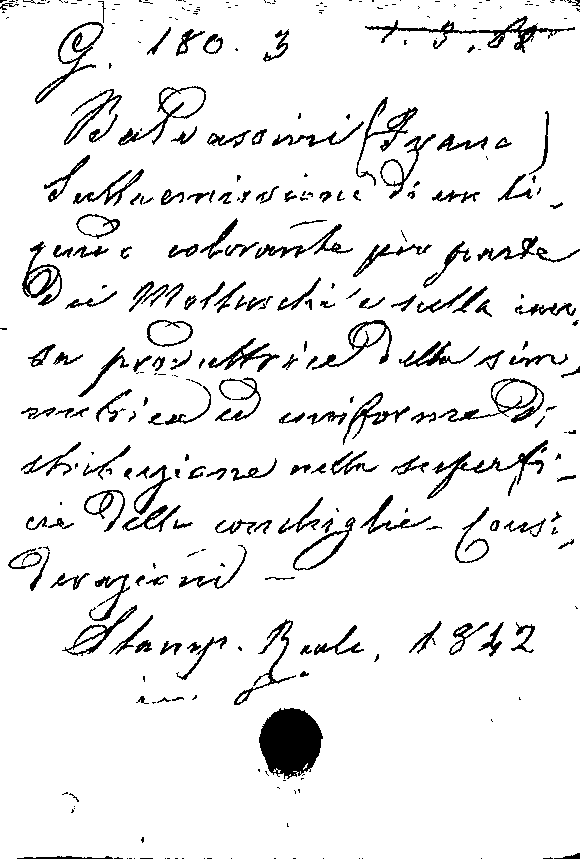 G. 180. 3 1. 3. 68
Baldassini (Franc)
Sulla emissione di un li-
quido colorante per parte
dei Molluschi e sulla cau-
sa produttrice della sim-
metrica ed uniforme di-
stribuzione nella superfi-
cie delle conchiglie - Consi-
derazioni -
Stamp. Reale, 1842
in